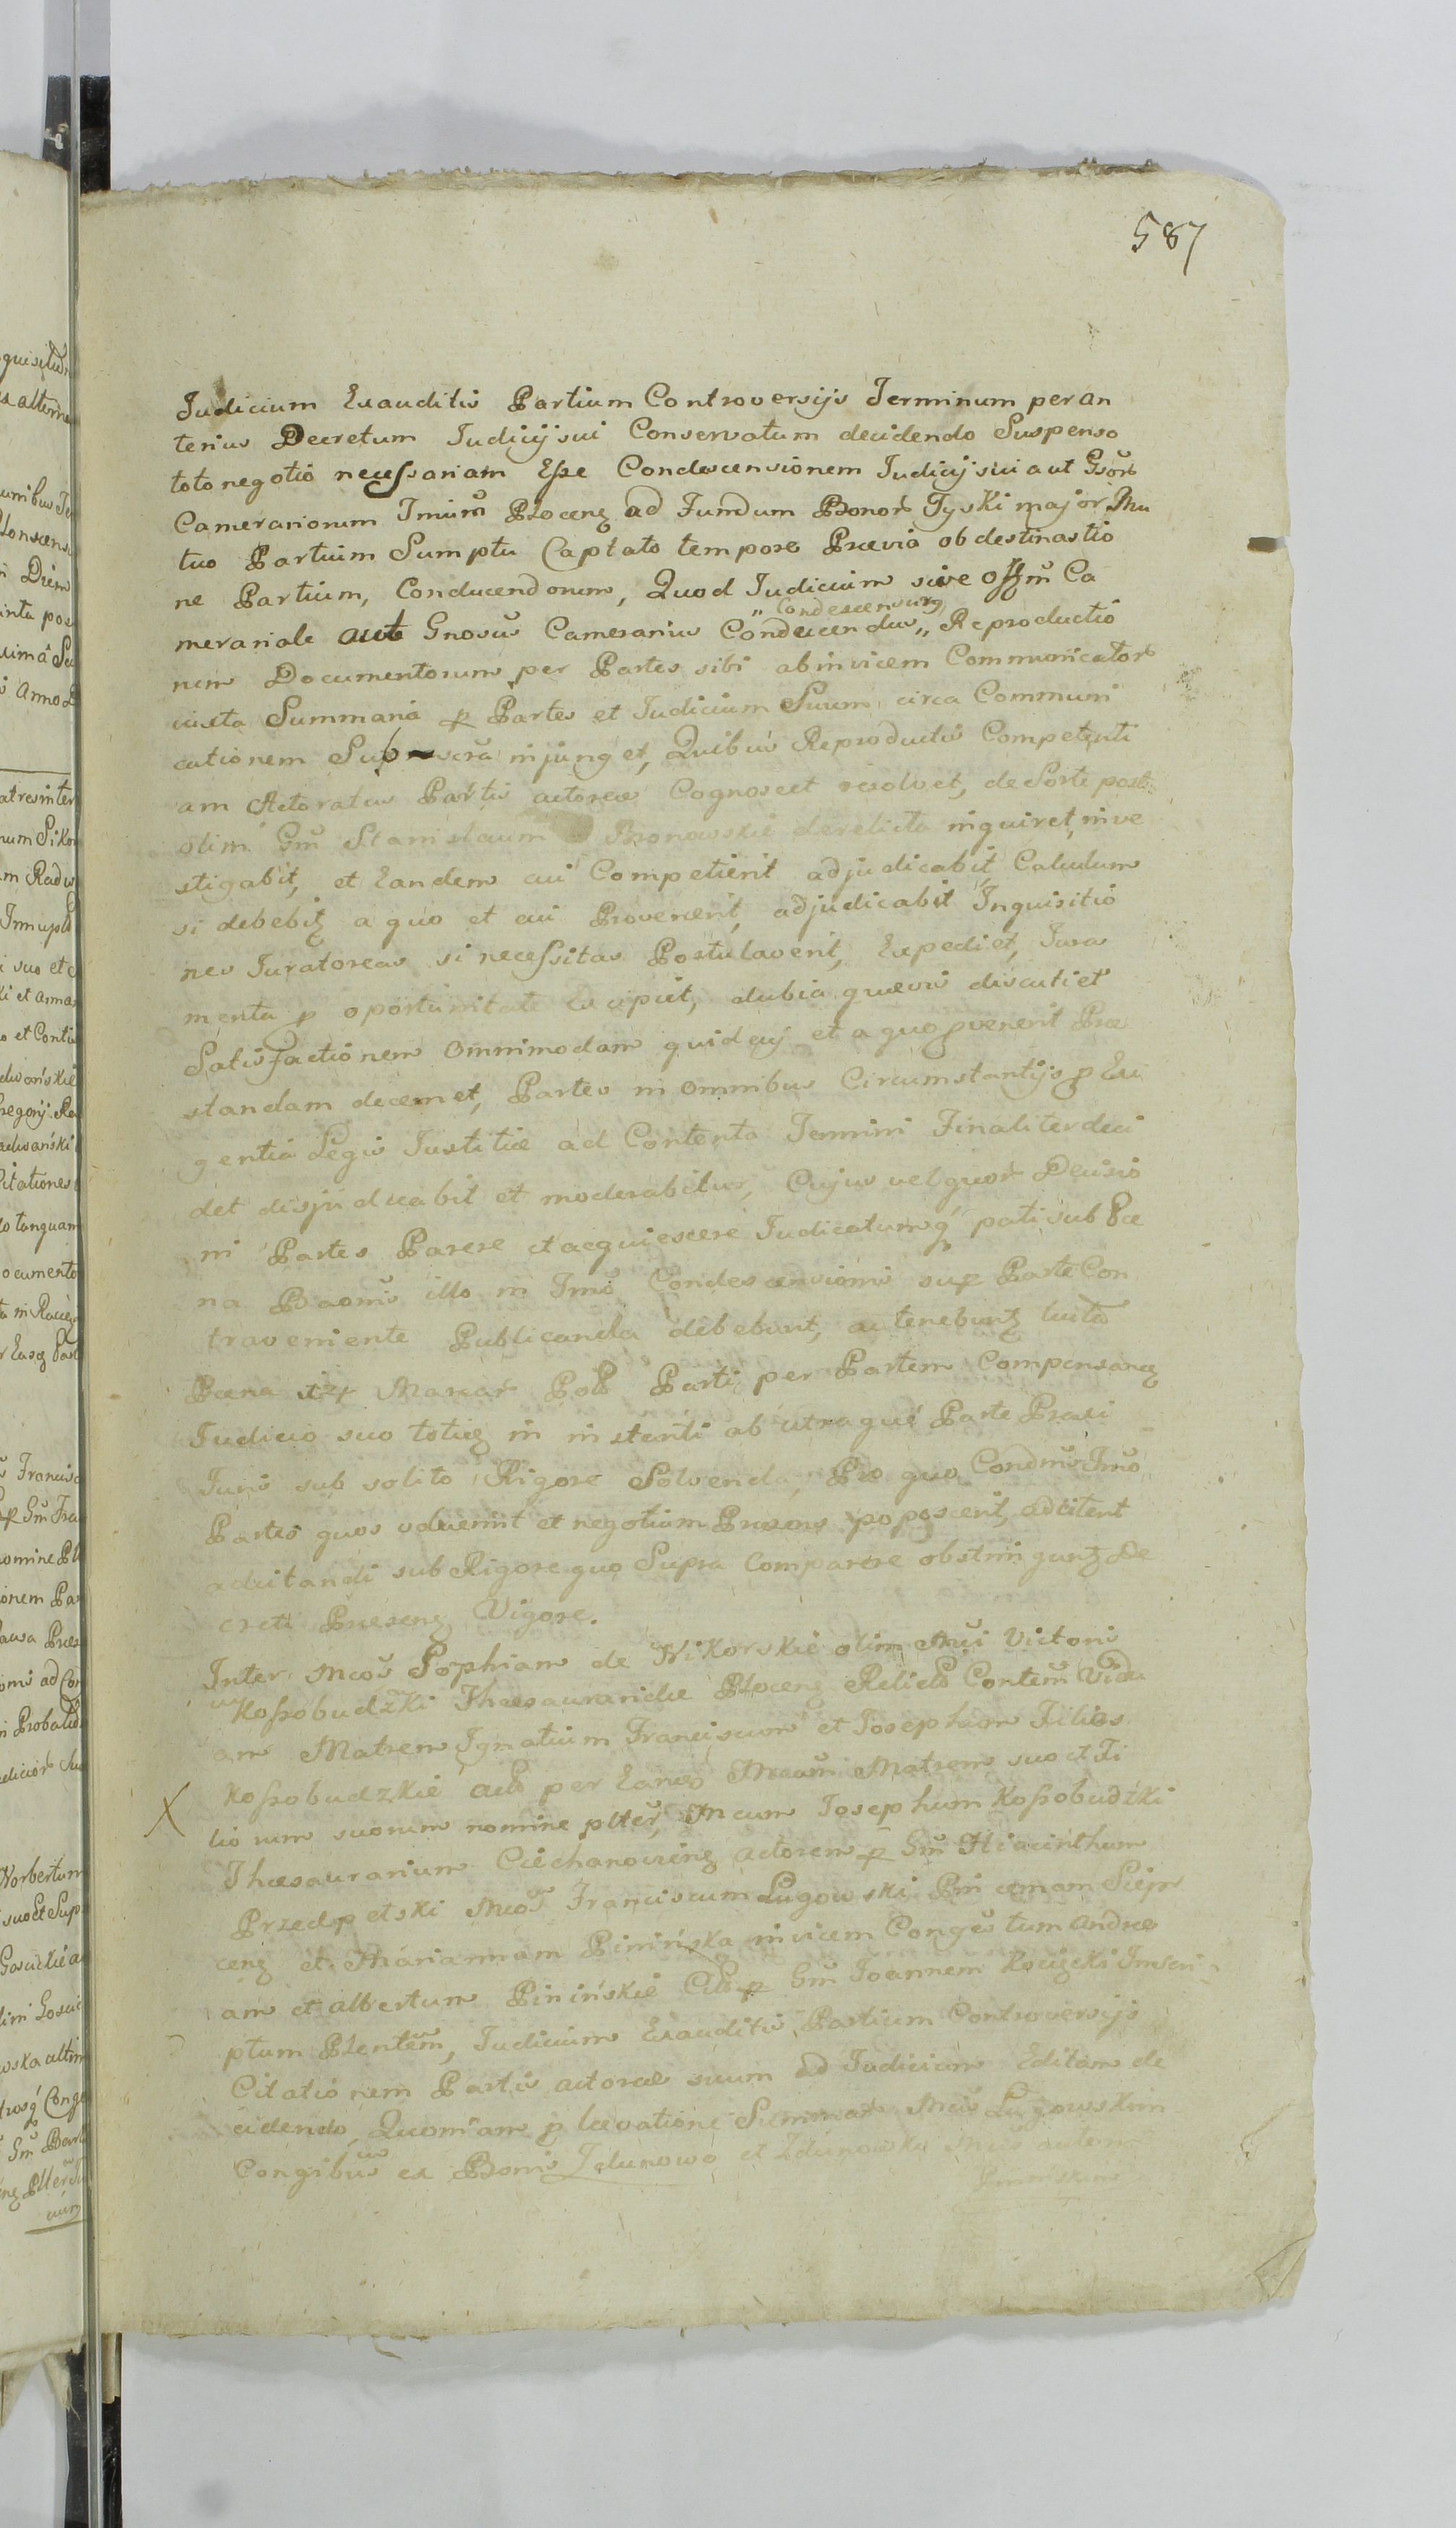 587
Judicium Exauditis Partium Controversijs Terminum per an
terius Decretum Judicij sui Conservatum decidendo Suspenso
toto negotio necessariam Esse Condescensionem Judicij sui aut Gsōr
Camerariorum Tmūm Płoceng ad Fundum Bonor Tyski major Mu
tuo Partium Sumptu Captato tempore Prævia obdestinastio
ne Partium, Conducendorum, Quod Judicium sive Offm̄ Ca
merariale aut Gnosūs Camerarius Condescendus „ Condescensurg „ Reproductio
nem Documentorum per Partes sibi abinvicem Communicator
iuxta Summaria p Partes et Judicium Suum circa Communi
cationem injunget, Quibus Reproductis Competenti
am Actoratus Partis actoreæ Cognoscet resolvet, de Sorte post
olim Gm̄ Stanislaum Bronowskie derelicta inquiret, inve
stigabit, et Eandem cui Competierit adjudicabit, Calculum
si debebitz a quo et cui Provenerit, adjudicabit Inquisitio
nes Juratoreas si necessitas Postulaverit, Expediet, Jura
menta p oportunitate Excipiet, dubia quævis discutiet
Satisfactionem Omnimodam quid cuj et a quo pvenerit Præ
standam decernet, Partes in Omnibus Circumstantijs p Exi
gentia Legis Justitiæ ad Contenta Termini Finaliter deci
det disjudicabit et moderabitur, Cujus vel quor Decisio
ni Partes Parere et acquiescere Judicatumq pati sub Pœ
na Baōnis illo in Tmō Condescensionis sup Parte Con
traveniente Publicanda debebunt, ac tenebuntz luita
Pæna Marcar Pol Parti per Partem Compensang
Judicio suo totieg in instenti ab utraque Parte Praxi
Juris sub solito Rigore Solvenda, Pro quo Condnīs Tmō
Partes quos voluerint et negotium Præsens poposcerit, adcitent
adcitandi sub Rigore quo Supra Comparere obstringuntz De
creti Præseng Vigore.
Inter Mcos Sophiam de Wikorskie olim Mci Victoris
Kossobudzki Thæsauraridæ Płoceng Relicta Contem Vidu
am Matrem Ignatium Franciscum et Josephum Filios
Kossobudzkie per Eand Matrem suo et Fi
liorum suorum nomine plter, Mcum Josephum Kossobudzki
Thæsaurarium Ciechanoviens actorem p Gm̄ Hiacinthum
Przedpetski Mcos Franciscum Lugowski Pincernam Sierp
ceng et Mariannam Pinińska invicem Conges tum Andre
am et albertum Pinińskie Citt p Gm̄ Joannem Kosicki Inscri
ptum Plentem, Judicium Exauditis Partium Controversijs
Citationem Partis actoreæ suum ad Judicium Editam de
cidendo, Quoniam p levatione Summar Mcus Lugowskim
Congibus ex Bonis Zdunowo et Zdunowko Mcus autem
Pininskim